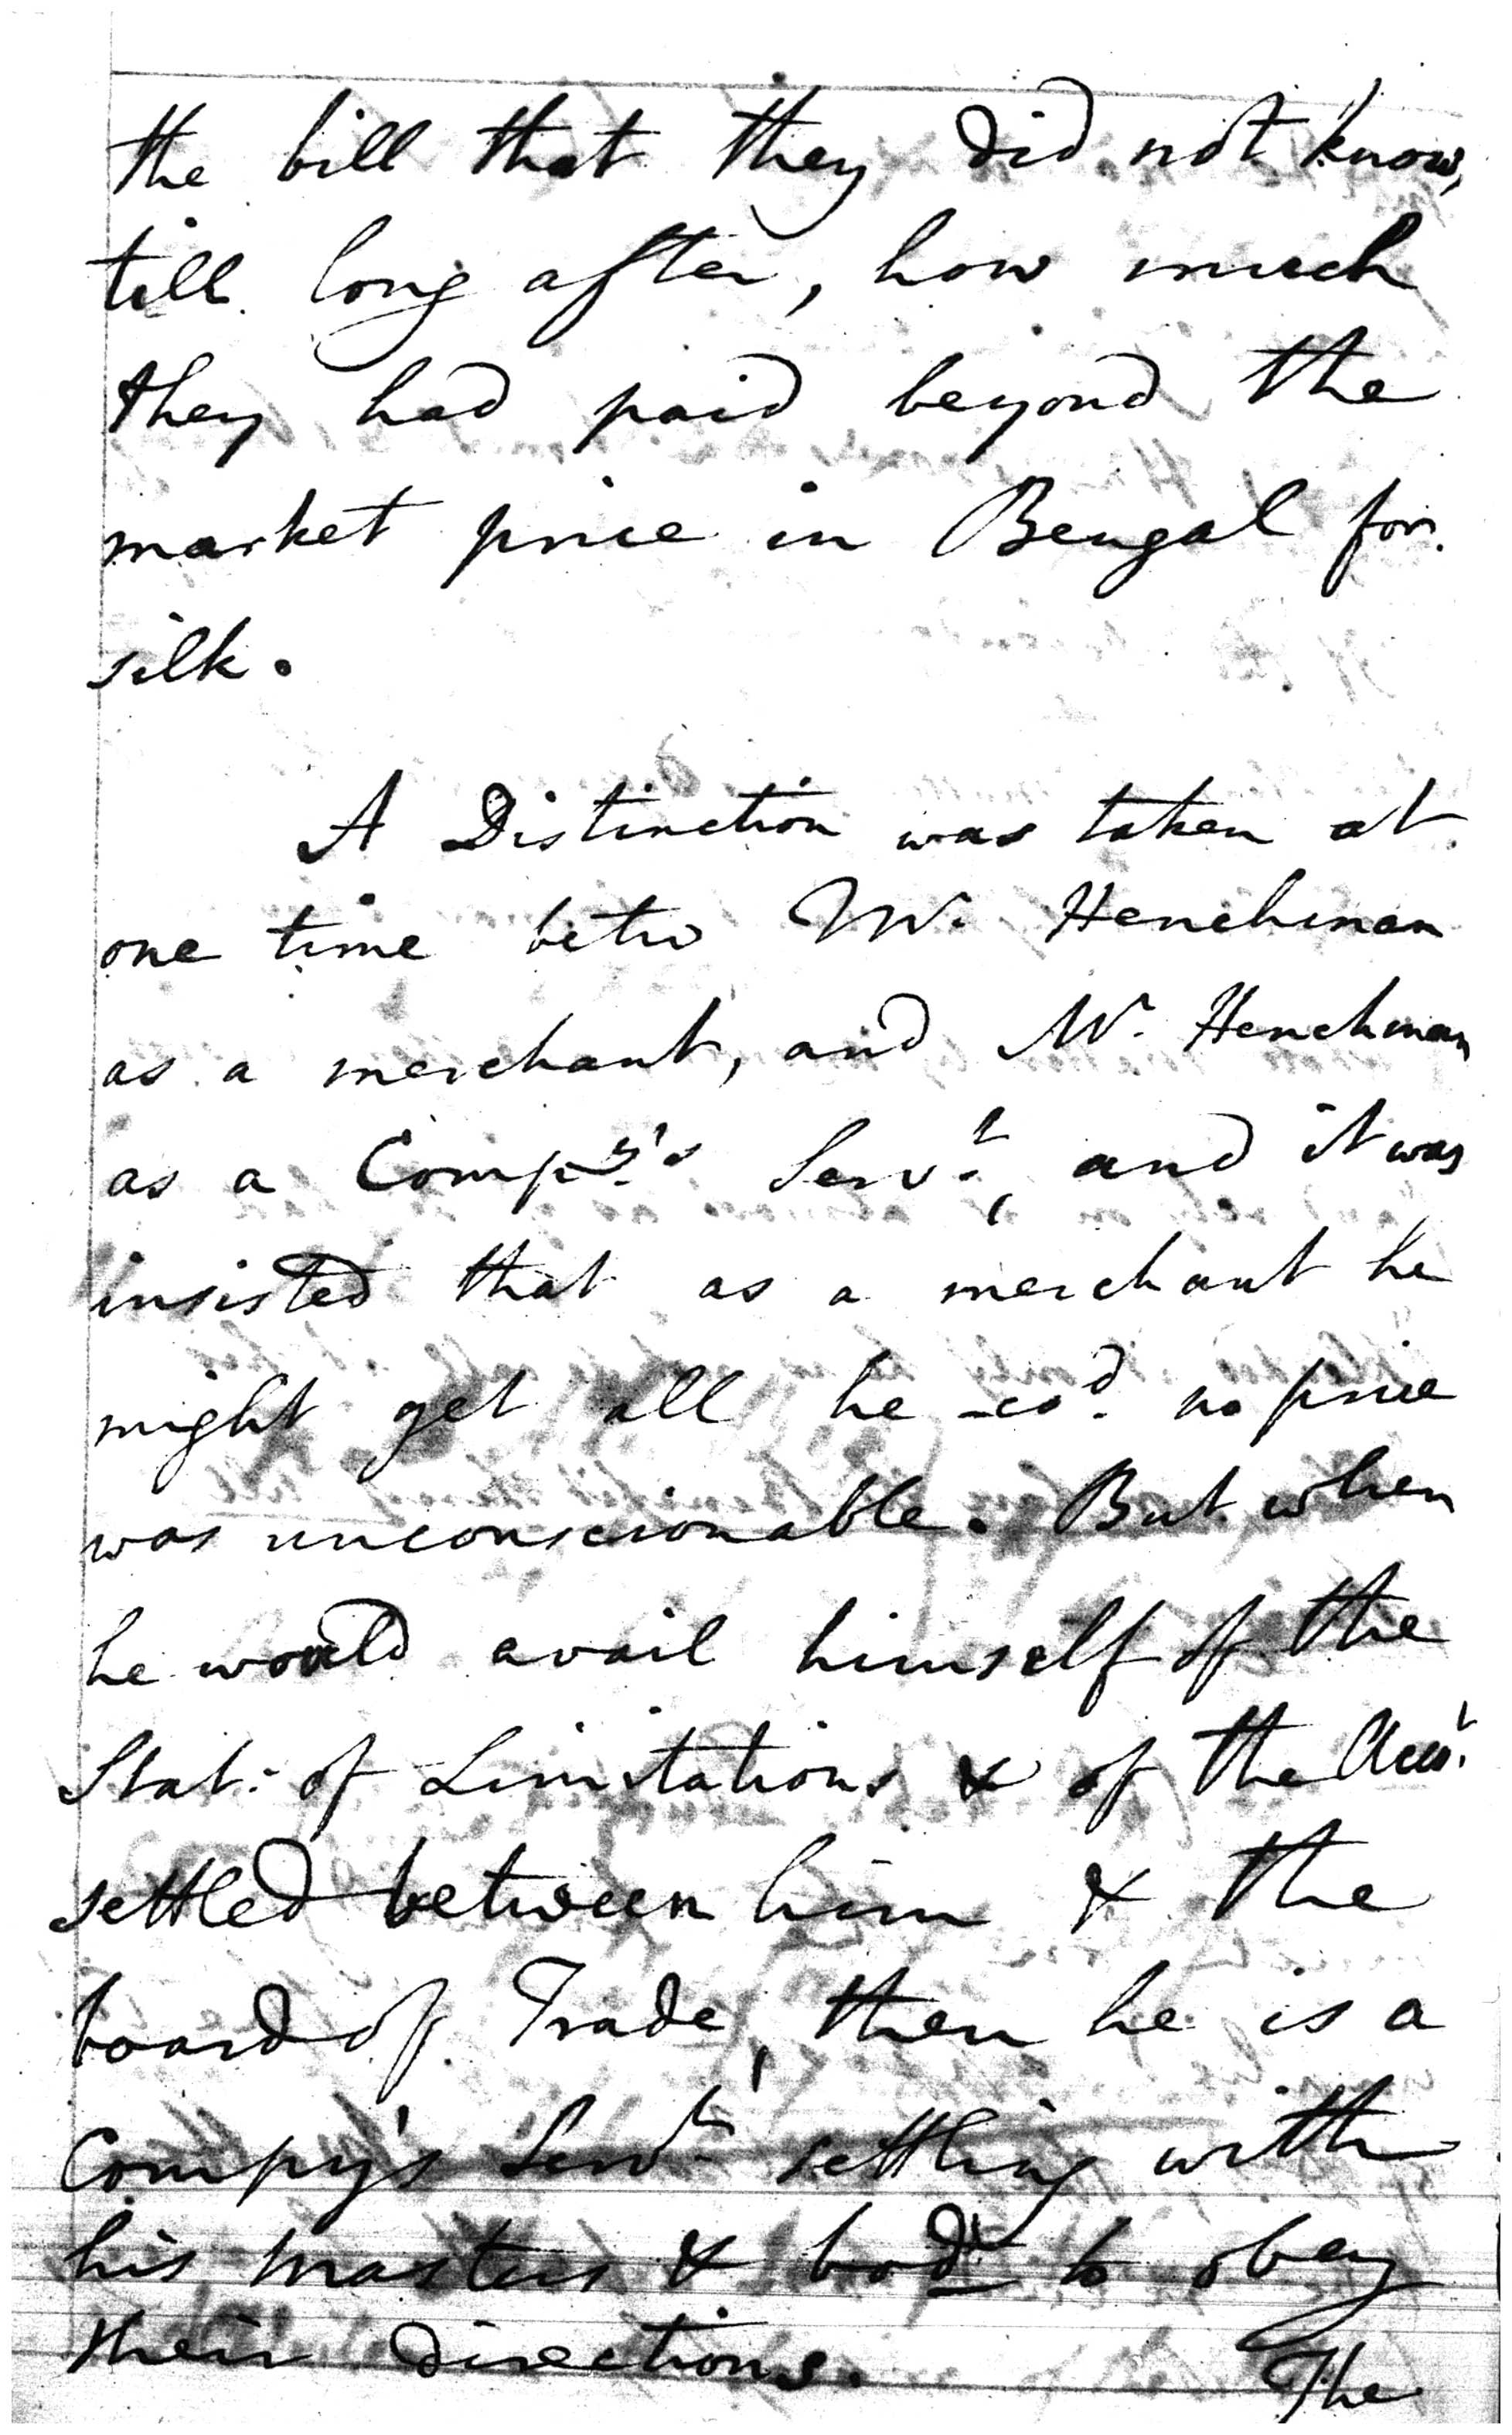 the bill that they did not know,
till long after, how much
they had paid beyond the
market price in Bengal for
silk.
A Distinction was taken at
one time betw Mr. Henchman
as a merchant, and Mr. Henchman
as a Compy's Servt, and it was
insisted that as a merchant he
might get all he cod. no price
was unconscionable. But when
he would avail himself of the
Stat: of Limitations & of the Acct.
settled between him & the
board of Trade, then he is a
Compy's Servt settling with
his masters & bod to obey
their directions.
The